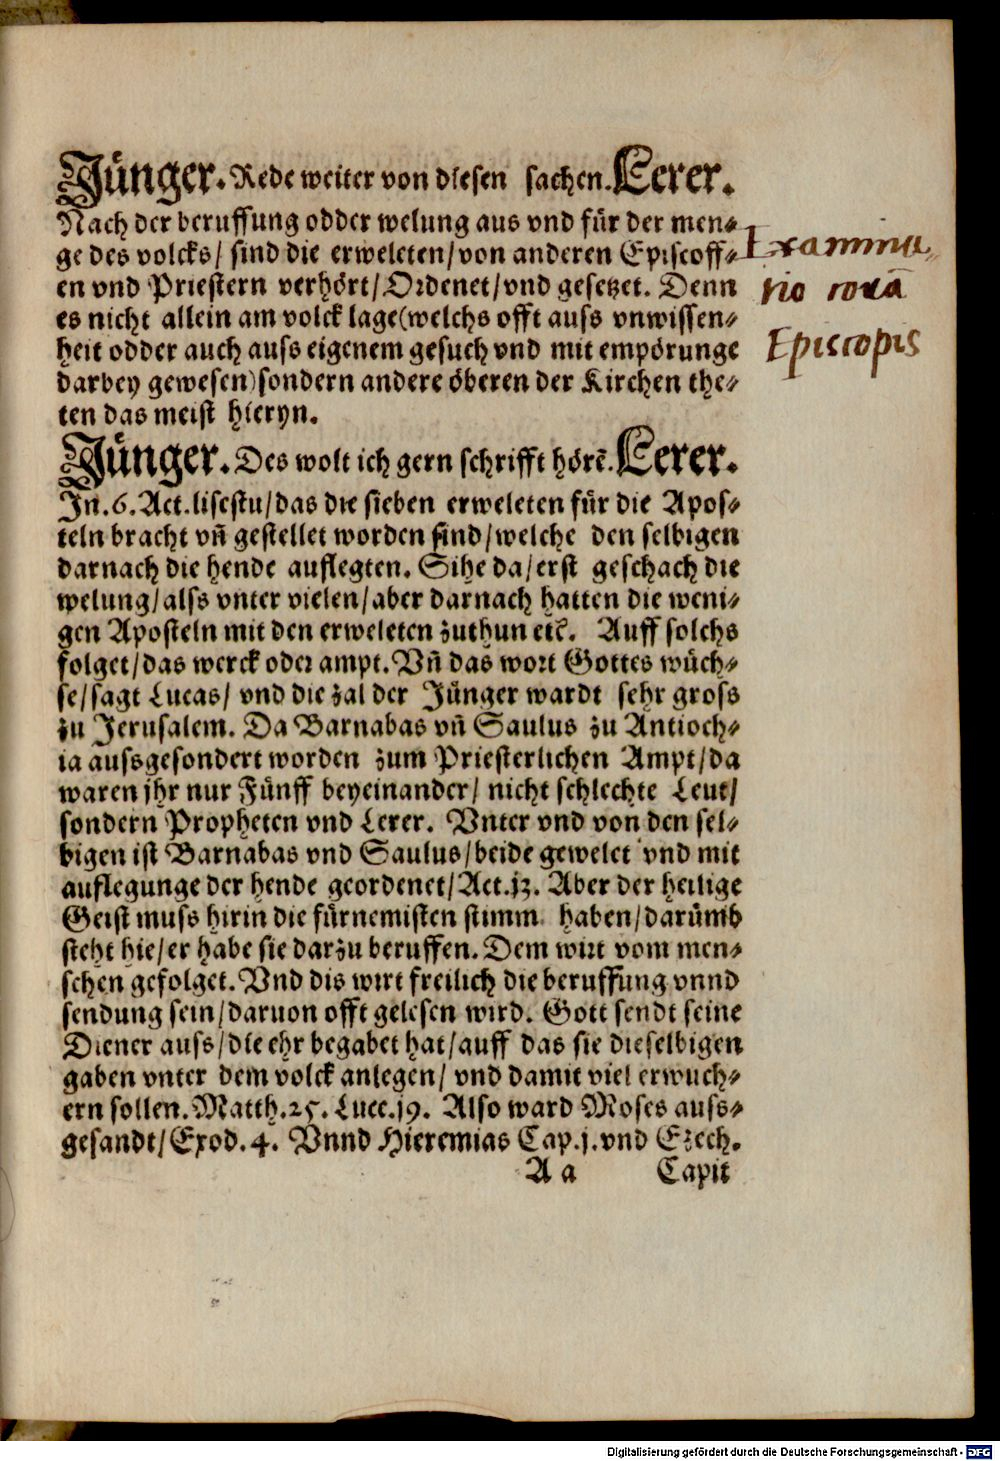 Jünger. Rede weiter von diesen sachen. Lerer.
Nach der beruffung odder welung aus vnd für der men⸗
ge des volcks/ sind die erweleten/ von anderen Episcoff⸗
en vnd Priestern verhört/ Ordenet/ vnd gesetzet. Denn
es nicht allein am volck lage (welchs offt auss vnwissen⸗
heit odder auch auss eigenem gesuch vnd mit empörunge
darbey gewesen) sondern andere öberen der Kirchen the⸗
ten das meist hieryn.
Jünger. Des wolt ich gern schrifft hörē. Lerer.
Jn. 6. Act. lisestu/ das die sieben erweleten für die Apos⸗
teln bracht vñ gestellet worden sind/ welche den selbigen
darnach die hende auflegten. Sihe da/ erst geschach die
welung/ alss vnter vielen/ aber darnach hatten die weni⸗
gen Aposteln mit den erweleten zuthun etc. Auff solchs
folget/ das werck oder ampt. Vñ das wort Gottes wüch⸗
se/ sagt Lucas/ vnd die zal der Jünger wardt sehr gross
zu Jerusalem. Da Barnabas vñ Saulus zu Antioch⸗
ia aussgesondert worden zum Priesterlichen Ampt/ da
waren jhr nur Fünff beyeinander/ nicht schlechte Leut/
sondern Propheten vnd Lerer. Vnter vnd von den sel⸗
bigen ist Barnabas vnd Saulus/ beide gewelet vnd mit
auflegunge der hende geordenet/ Act. j3. Aber der heilige
Geist muss hirin die fürnemisten stimm haben/ darümb
steht hie/ er habe sie darzu beruffen. Dem wirt vom men⸗
schen gefolget. Vnd dis wirt freilich die beruffung vnnd
sendung sein/ daruon offt gelesen wird. Gott sendt seine
Diener auss/ die ehr begabet hat/ auff das sie dieselbigen
gaben vnter dem volck anlegen/ vnd damit viel erwuch⸗
ern sollen. Matth. 25. Luce. j9. Also ward Moses auss⸗
gesandt/ Exod. 4. Vnnd Hieremias Cap. j. vnd Ezech.
A a Capit
Examina⸗
tio
Episcopis
Digitalisierung gefördert durch die Deutsche Forschungsgemeinschaft - DFG